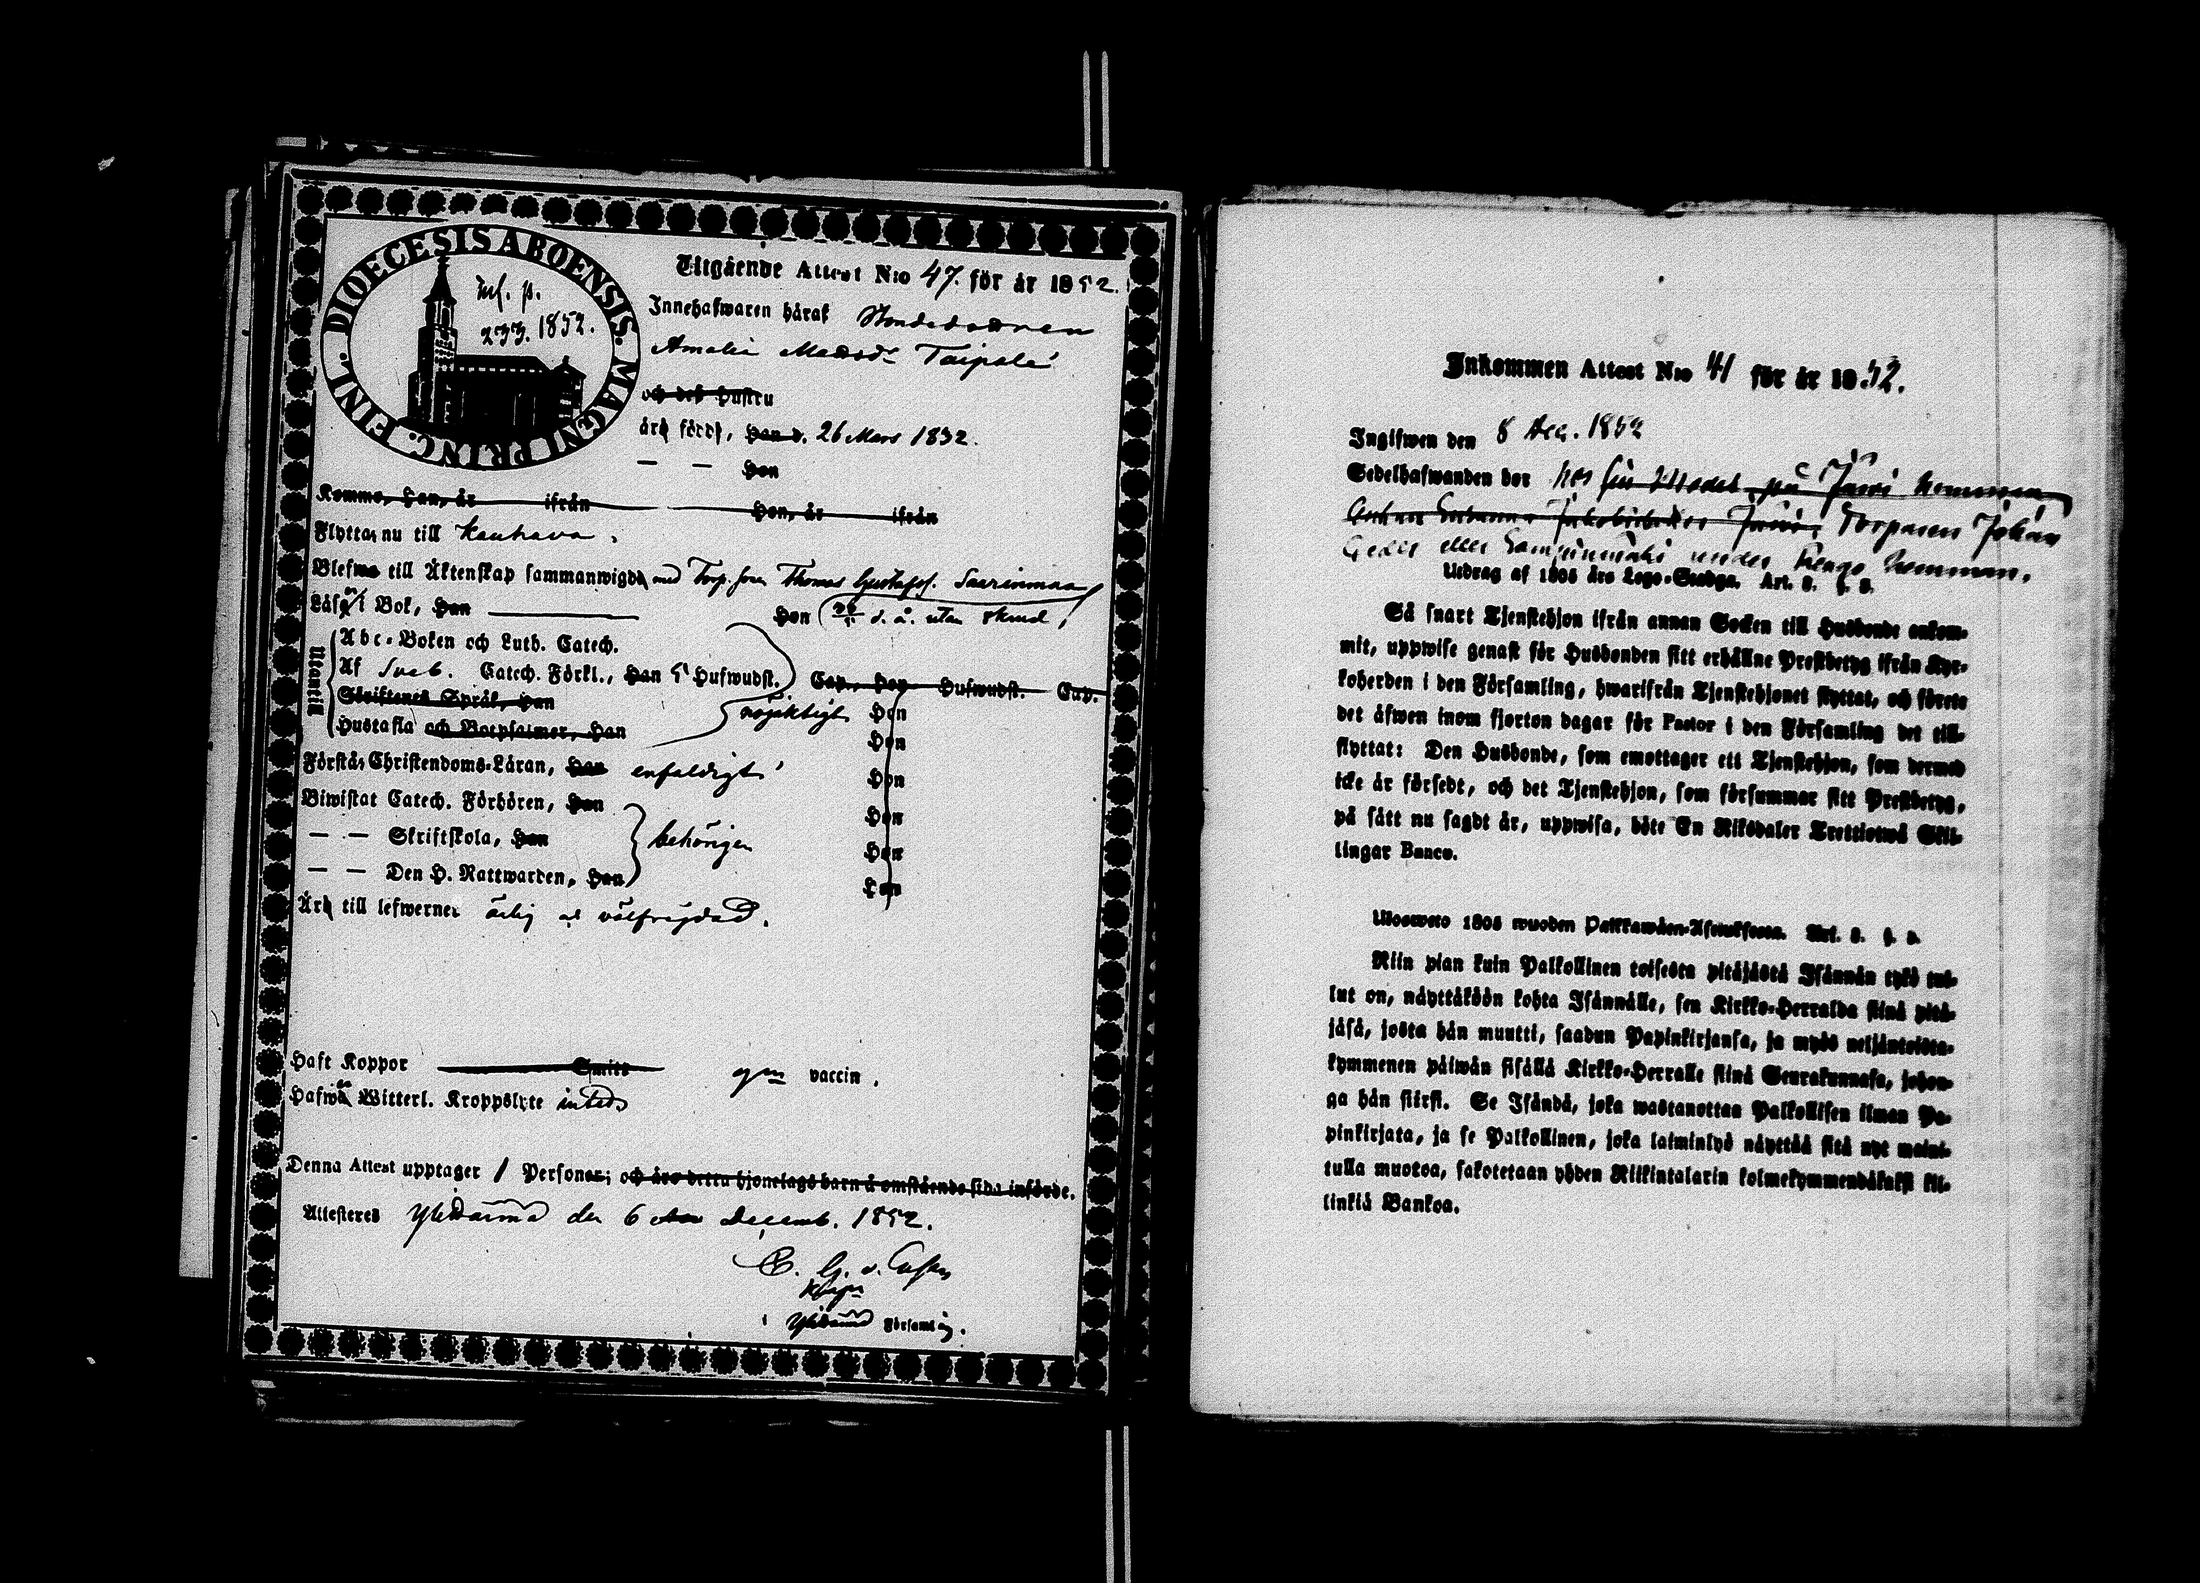 DIOECESIS ABOENSIS. MAGNI PRINC. FINL.
Inf. p.
233. 1852.
Utgående Attest N:o 47. för år 1852.
Innehafwaren häraf Bondedottren
Amalia Matsd:r Taipale
och des hustru
är född, han d. 26 Mars 1832.
— — Hon
Komme, Han, år ifrån Hon, år ifrån
Flyttar nu till Kauhava.
Blefwo till Äktenskap sammanwigde med Torp.son Thomas Gustafss. Saarinmaa
Läser i Bok, Han Hon d. å. utan skrud
Utantill
Abc-Boken och Luth. Catech.
Af Sveb. Catech. Förkl., Han 5 Hufwudst. Cap., Hon Hufwudst. Cap.
Skriftenes Språk, Han nöjaktigt Hon
Hustafla och Botpsalmer, Han Hon
Förstår Christendoms-Läran, Han enfaldigt Hon
Biwistat Catech. Förhören, Han Hon
— — Skriftskola, Han behörigen Hon
— — Den H. Nattwarden, Han Hon
Är till lefwernet ärlig och välfrägdad.
Haft Koppor Smitt gm vaccin.
Hafwer Witterl. Kroppslyte intet
Denna Attest upptager 1 Personer; och äro detta hjonelags barn å omstående sida införde.
Attesteres Ylihärmä den 6 Decemb. 1852.
C. G. v. Essen
Kapn
i Ylihärmä Församling.
Inkommen Attest N:o 41 för år 1852.
Ingifwen den 8 Dec. 1852
Sedelhafwanden bor hos sin på Jussi hemman
Torparen Johan
under hemman.
Utdrag af 1805 års Lego-Stadga. Art. 8. §. 5.
Så snart Tjenstehjon ifrån annan Socken till Husbonde ankom-
mit, uppwise genast för Husbonden sitt erhållne Prestbetyg ifrån Kyr-
koherden i den Församling, hwarifrån Tjenstehjonet flyttat, och förete
det äfwen inom fjorton dagar för Pastor i den Församling det till-
flyttat: Den Husbonde, som emottager ett Tjenstehjon, som dermed
icke är försedt, och det Tjenstehjon, som försummar sitt Prestbetyg,
på sätt nu sagdt är, uppwisa, böte En Riksdaler Trettiotwå Skil-
lingar Banco.
Ulosweto 1805 wuoden Palkkawäen-Asetuksesta. Art. 8. §. 5.
Niin pian kuin Palkollinen toisesta pitäjästä Isännän tykö tul-
lut on, näyttäköön kohta Isännälle, sen Kirkko-Herralda siinä pitä-
jäsä, josta hän muutti, saadun Papinkirjansa, ja myös neljäntoista-
kymmenen päiwän sisällä Kirkko-Herralle siinä Seurakunnasa, johon-
ga hän siirsi. Se Isändä, joka wastanottaa Palkollisen ilman Pa-
pinkirjata, ja se Palkollinen, joka laiminlyö näyttää sitä nyt maini-
tulla muotoa, sakotetaan yhden Riikintalarin kolmekymmendäkaksi kil-
linkiä Bankoa.